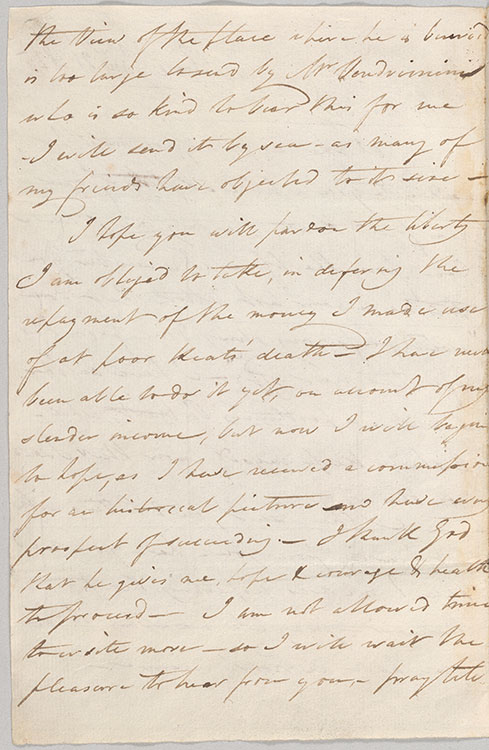 the View of the place where he is buried
is too large to send by Mr Vendrimini
who is so kind to bear this for me
- I will send it by sea - as many of
my friends have objected to its size -
I hope you will pardon the liberty
I am obliged to take, in defering the
repayment of the money I made use
of at poor Keats' death - I have never
been able to do it yet, on account of my
slender income, but now I will begin
to hope, as I have received a commission
for an historical picture and have every
prospect of succeeding - I thank God
that he gives me hope & courage & health
to proceed - I am not allowed time
to write more - so I will wait the
pleasure to hear from you, - pray